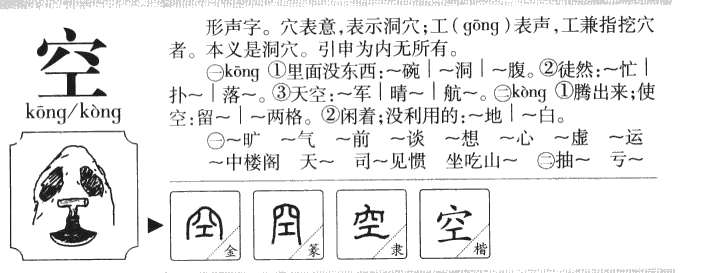 空
kōng/kòng
形声字。穴表意,表示洞穴;工(gōng)表声,工兼指挖穴
者。本义是洞穴。引申为内无所有。
㊀kōng ①里面没东西:~碗|~洞|~腹。②徒然:~忙|
扑~|落~。③天空:~军|晴~|航~。㊁kòng ①腾出来;使
空:留~|~两格。②闲着;没利用的:~地|~白。
㊀~旷 ~气 ~前 ~谈 ~想 ~心 ~虚 ~运
~中楼阁 天~ 司~见惯 坐吃山~ ㊁抽~ 亏~
空 金 空 篆 空 隶 空 楷